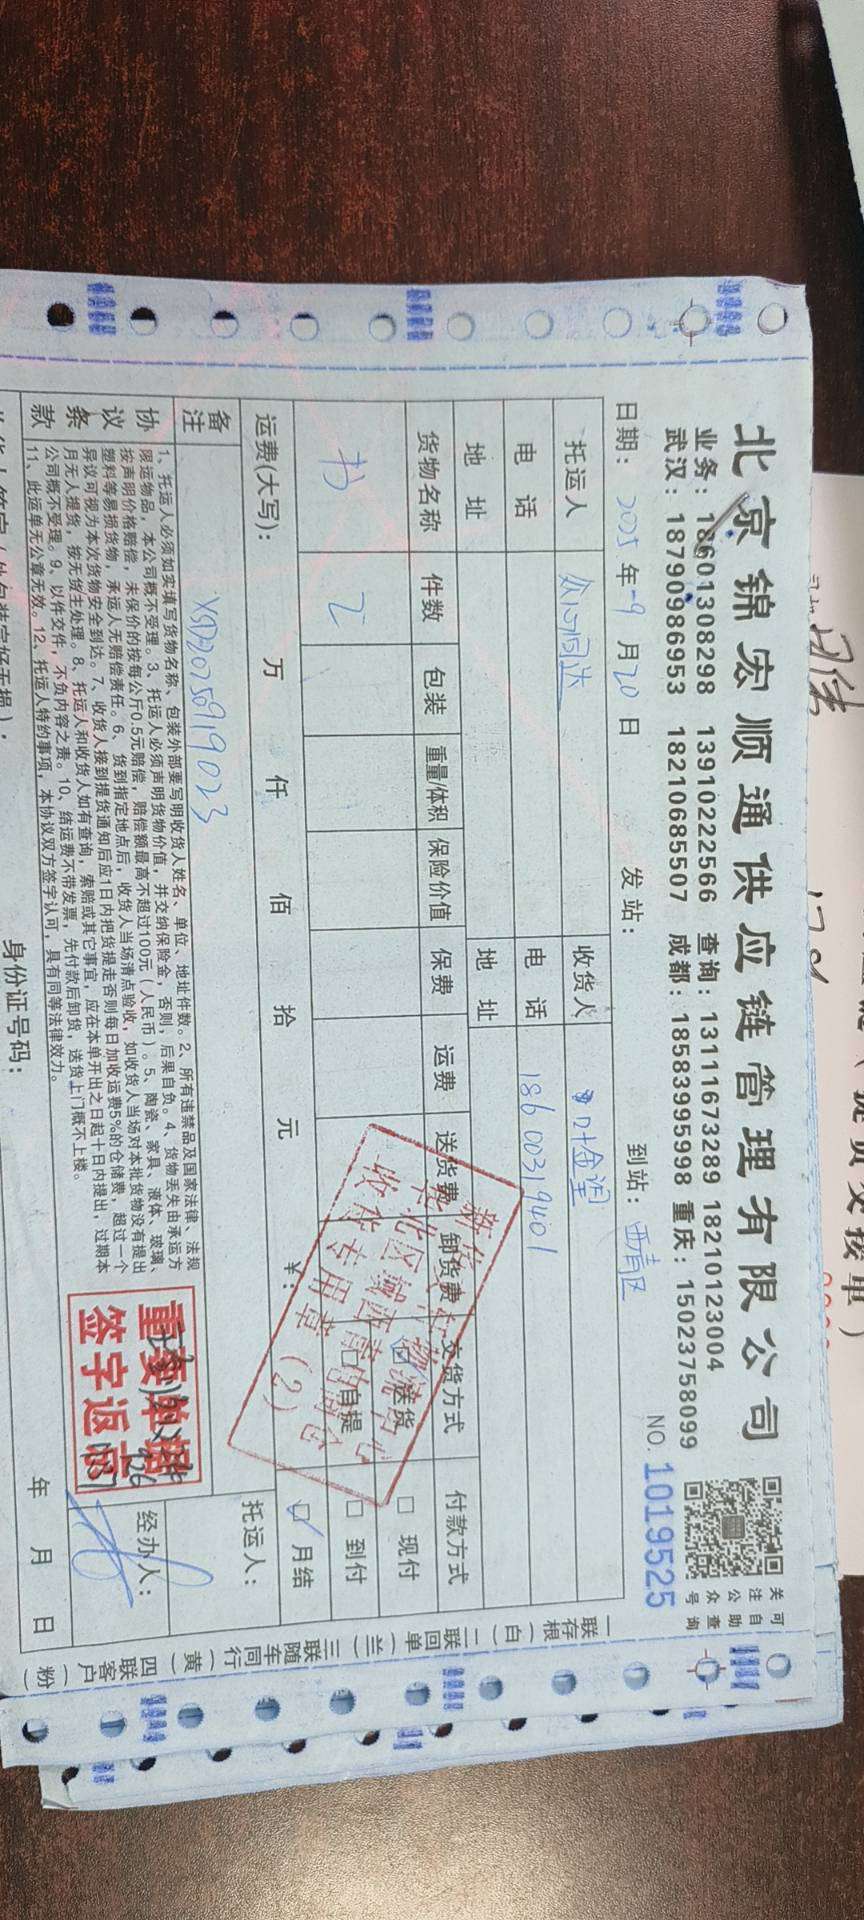 北京锦宏顺通供应链管理有限公司
业务：18601308298 13910222566 查询：13111673289 18210123004
武汉：18790986953 18210685507 成都：18583995998 重庆：15023758099
关注公众号
可自助查询
日期：2025年9月20日 发站： 到站：西青区 NO.1019525
托运人 众心同达 收货人 叶金闯
电话 电话 18600319401
地址 地址
货物名称 件数 包装 重量/体积 保险价值 保费 运费 送货费 卸货费 交货方式 付款方式
书 2 送货 自提 现付 到付 月结
运费(大写)： 万 仟 佰 拾 元 ¥：
托运人：
备注 XSD20250919023
经办人：
重要单据
签字返回
收货专用章（2）
协议条款
1、托运人必须如实填写货物名称、包装外部要写明收货人姓名、单位、地址件数。2、所有违禁品及国家法律、法规
限运物品，本公司概不受理。3、托运人必须声明货物价值，并交纳保险金，否则，后果自负。4、货物丢失由承运方
按声明价格赔偿，未保价的按每公斤0.5元赔偿，赔偿额最高不超过100元（人民币）。5、陶瓷、家具、液体、玻璃、
塑料等易损货物，承运人无赔偿责任。6、货到指定地点后，收货人当场清点验收，如收货人当场对本批货物没有提出
异议可视为本次货物安全到达。7、收货人接到提货通知后应1日内把货提走否则每日加收运费5%的仓储费，超过一个
月无人提货，按无货主处理。8、托运人和收货人如有查询，索赔或其它事宜，应在本单开出之日起十日内提出，过期本
公司概不受理。9、以件交件，不负内容之责。10、结运费不带发票，先付款后卸货，送货上门概不上楼。
11、此运单无公章无效。12、托运人特约事项，本协议双方签字认可，具有同等法律效力。
身份证号码： 年 月 日
一联存根（白） 二联回单（兰） 三联随车同行（黄） 四联客户（粉